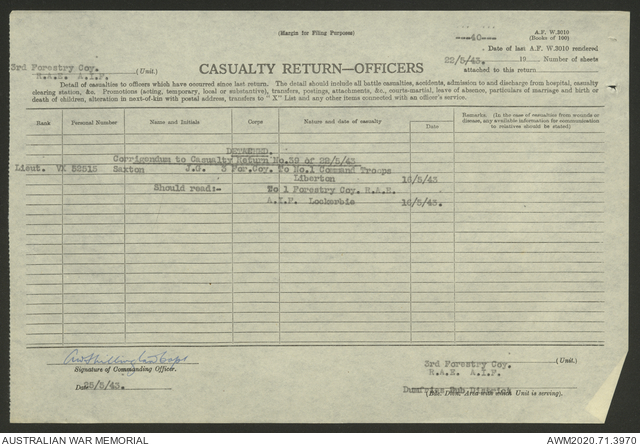 (Margin for Filing Purposes)
A.F. W.3010
(Books of 100)
---40---
Date of last A.F. W.3010 rendered
22/5/43. 19
Number of sheets
attached to this return
3rd Forestry Coy.
R.A.E. A.I.F. (Unit.)
CASUALTY RETURN—OFFICERS
Detail of casualties to officers which have occurred since last return. The detail should include all battle casualties, accidents, admission to and discharge from hospital, casualty
clearing station, &c. Promotions (acting, temporary, local or substantive), transfers, postings, attachments, &c., courts-martial, leave of absence, particulars of marriage and birth or
death of children, alteration in next-of-kin with postal address, transfers to "X" List and any other items connected with an officer's service.
Rank Personal Number Name and Initials Corps Nature and date of casualty Date
Remarks. (In the case of casualties from wounds or
disease, any available information for communication
to relatives should be stated)
DETACHED.
Corrigendum to Casualty Return No.39 of 22/5/43
Lieut. VX 52515 Saxton J.G. 3 For.Coy. To No.1 Command Troops
Liberton 16/5/43
Should read:- To 1 Forestry Coy. R.A.E.
A.I.F. Lockerbie 16/5/43.
Capt
Signature of Commanding Officer.
Date 25/5/43.
3rd Forestry Coy. (Unit.)
R.A.E. A.I.F.
Dumfries Sub District
(Dis. Dom. Area with which Unit is serving).
AUSTRALIAN WAR MEMORIAL
AWM2020.71.3970